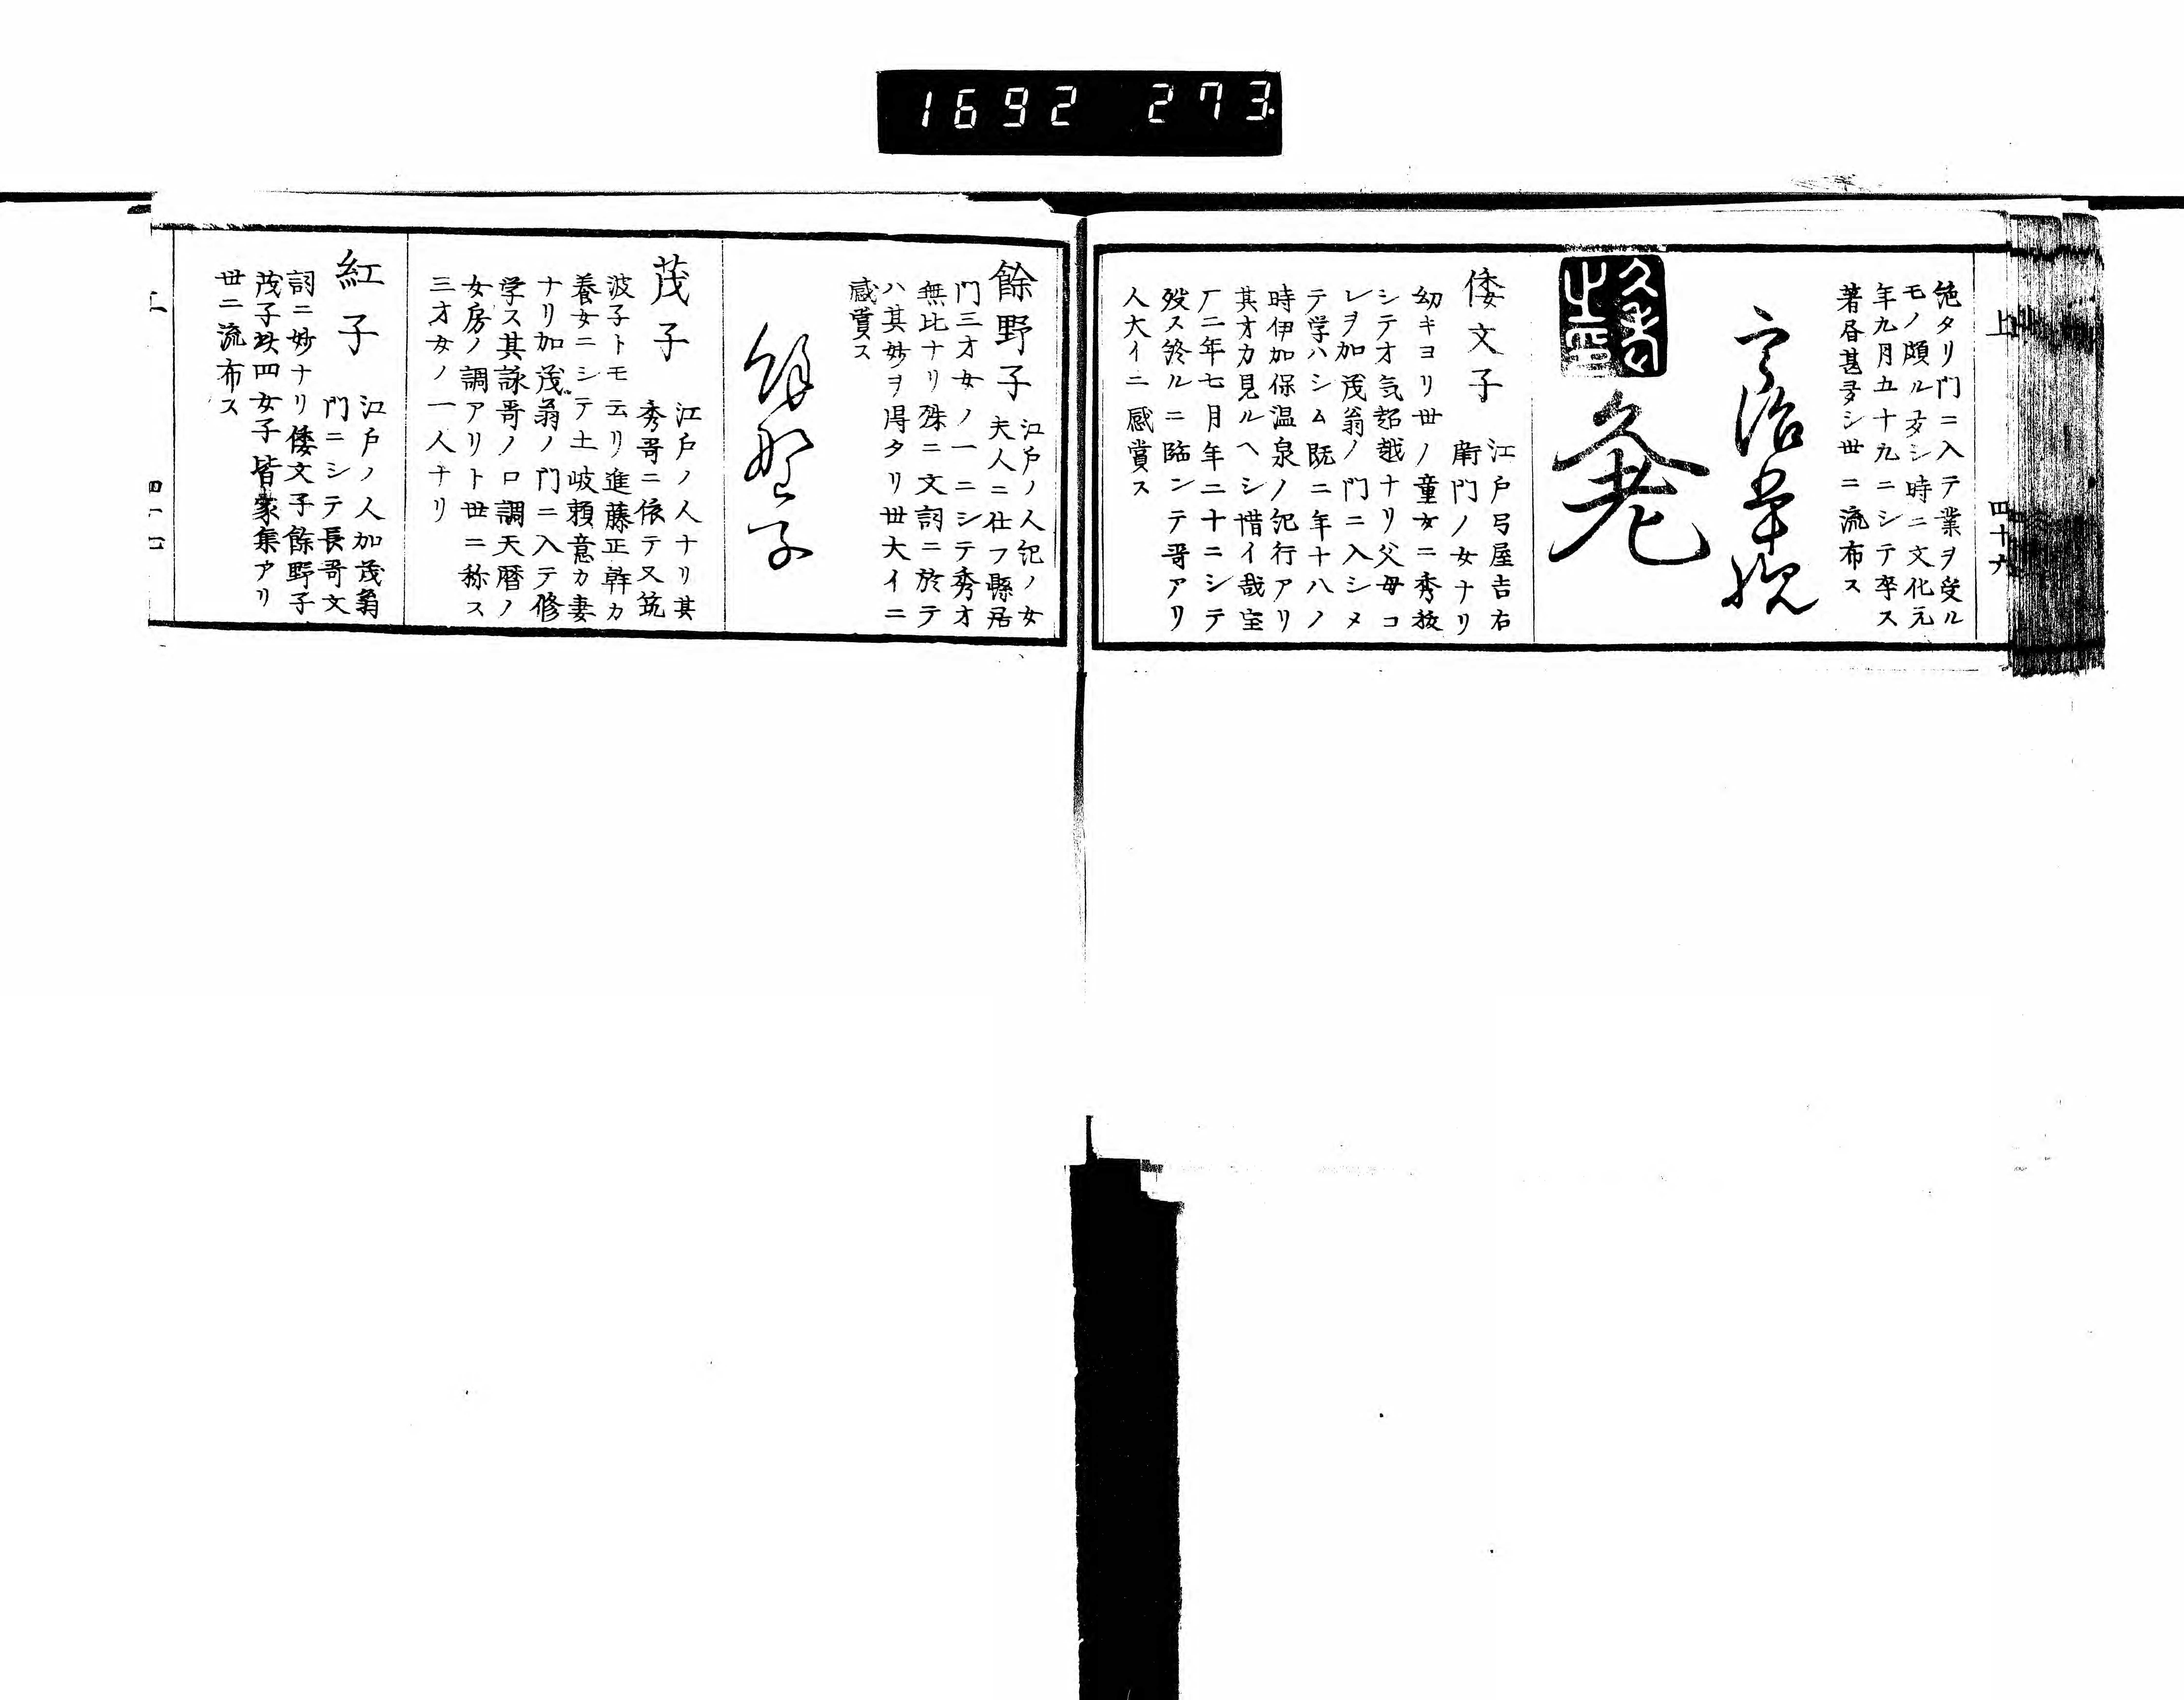 1692 273
上
四十六
絶タリ門ニ入テ業ヲ受ル
モノ頗ル多シ時ニ文化元
年九月五十九ニシテ卒ス
著昏甚多シ世ニ流布ス
倭文子
江戸弓屋吉右
衛門ノ女ナリ
幼キヨリ世ノ童女ニ秀抜
シテオ気超越ナリ父母コ
レヲ加茂翁ノ門ニ入シメ
テ学ハシム既ニ年十八ノ
時伊加保温泉ノ記行アリ
其才力見ルヘシ惜イ哉宝
厂二年七月年二十ニシテ
歿ス終ルニ臨ンテ哥アリ
人大イニ感賞ス
餘野子
江戸ノ人記ノ女
夫人ニ仕フ縣居
門三才女ノ一ニシテ秀オ
無比ナリ殊ニ文詞ニ於テ
ハ其妙ヲ得タリ世大イニ
感賞ス
餘野子
茂子
江戸ノ人ナリ其
秀哥ニ依テ又筑
波子トモ云リ進藤正幹カ
養女ニシテ土岐頼意カ妻
ナリ加茂翁ノ門ニ入テ修
学ス其詠哥ノ口調天暦ノ
女房ノ調アリト世ニ称ス
三才女ノ一人ナリ
紅子
江戸ノ人加茂翁
門ニシテ長哥文
詞ニ妙ナリ倭文子餘野子
茂子玖四女子皆家集アリ
世ニ流布ス